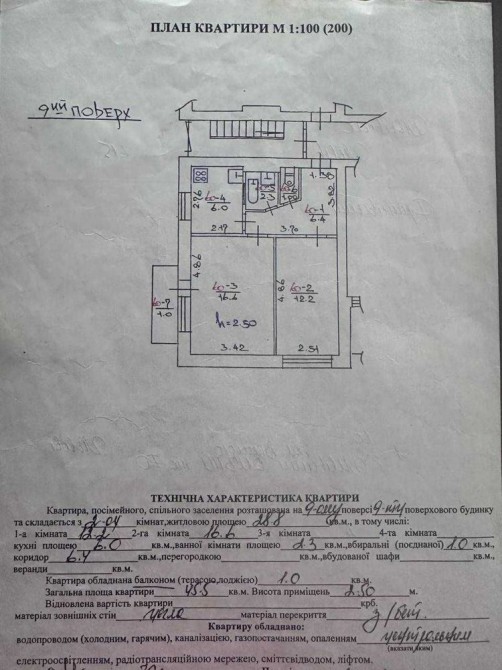 ПЛАН КВАРТИРИ М 1:100 (200)
9ий ПОВЕРХ
1.30
3.82
60-4
6.0
2.76
2.3
60-1
6.4
2.19
3.70
4.86
60-3
16.6
4.86
60-2
12.2
60-7
1.0
h=2.50
3.42
2.51
ТЕХНІЧНА ХАРАКТЕРИСТИКА КВАРТИРИ
Квартира, посімейного, спільного заселення розташована на 9-ому поверсі 9-ти поверхового будинку
та складається з 2-ох кімнат, житловою площею 28.8 кв.м., в тому числі:
1-а кімната 12.2 2-га кімната 16.6 3-я кімната 4-та кімната
кухні площею 6.0 кв.м., ванної кімнати площею 2.3 кв.м., вбиральні (поєднаної) 1.0 кв.м.,
коридор 6.4 кв.м., перегородкою кв.м., вбудованої шафи кв.м.,
веранди кв.м.
Квартира обладнана балконом (терасою, лоджією) 1.0 кв.м.
Загальна площа квартири 45.5 кв.м. Висота приміщень 2.50 м.
Відновлена вартість квартири крб.
матеріал зовнішніх стін матеріал перекриття з/бет.
Квартиру обладнано:
водопроводом (холодним, гарячим), каналізацією, газопостачанням, опаленням центральним
(вказати яким)
електроосвітленням, радіотрансляційною мережею, сміттєвідводом, ліфтом,